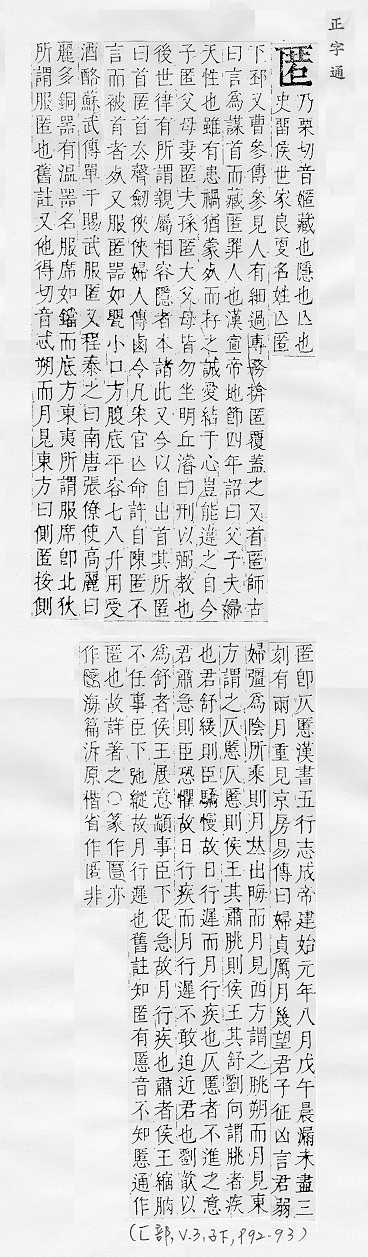 正字通
匿
乃栗切音㘝藏也隱也亾也
史畱侯世家良更名姓亾匿
下邳又曹參傳參見人有細過專務揜匿覆蓋之又首匿師古
曰言爲謀首而藏匿罪人也漢宣帝地節四年詔曰父子夫婦
天性也雖有患禍猶蒙死而存之誠愛結于心豈能違之自今
子匿父母妻匿夫孫匿大父母皆勿坐明丘濬曰刑以弼教也
後世律有所謂親屬相容隱者本諸此又今以自出首其所匿
曰首匿首去聲劒俠俠婦人傳鹵令凡朱官亾命許自陳匿不
言而被首者死又服匿器如甖小口方腹底平容七八升用受
酒酪蘇武傳單于賜武服匿又程泰之曰南唐張僚使高麗曰
麗多銅器有溫器名服席如鐺而底方東夷所謂服席卽北狄
所謂服匿也舊註又他得切音忒朔而月見東方曰側匿按側
匿卽仄慝漢書五行志成帝建始元年八月戊午晨漏未盡三
刻有兩月重見京房易傳曰婦貞厲月幾望君子征凶言君弱
婦彊爲陰所乘則月竝出晦而月見西方謂之朓朔而月見東
方謂之仄慝仄慝則侯王其肅朓則侯王其舒劉向謂朓者疾
也君舒緩則臣驕慢故日行遲而月行疾也仄慝者不進之意
君肅急則臣恐懼故日行疾而月行遲不敢迫近君也劉歆以
爲舒者侯王展意顓事臣下促急故月行疾也肅者侯王縮朒
不任事臣下弛縱故月行遲也舊註知匿有慝音不知慝通作
匿也故詳著之○篆作匿亦
作䁥海篇泝原楷省作匿非
(匸部,V.3,子下,P92-93)